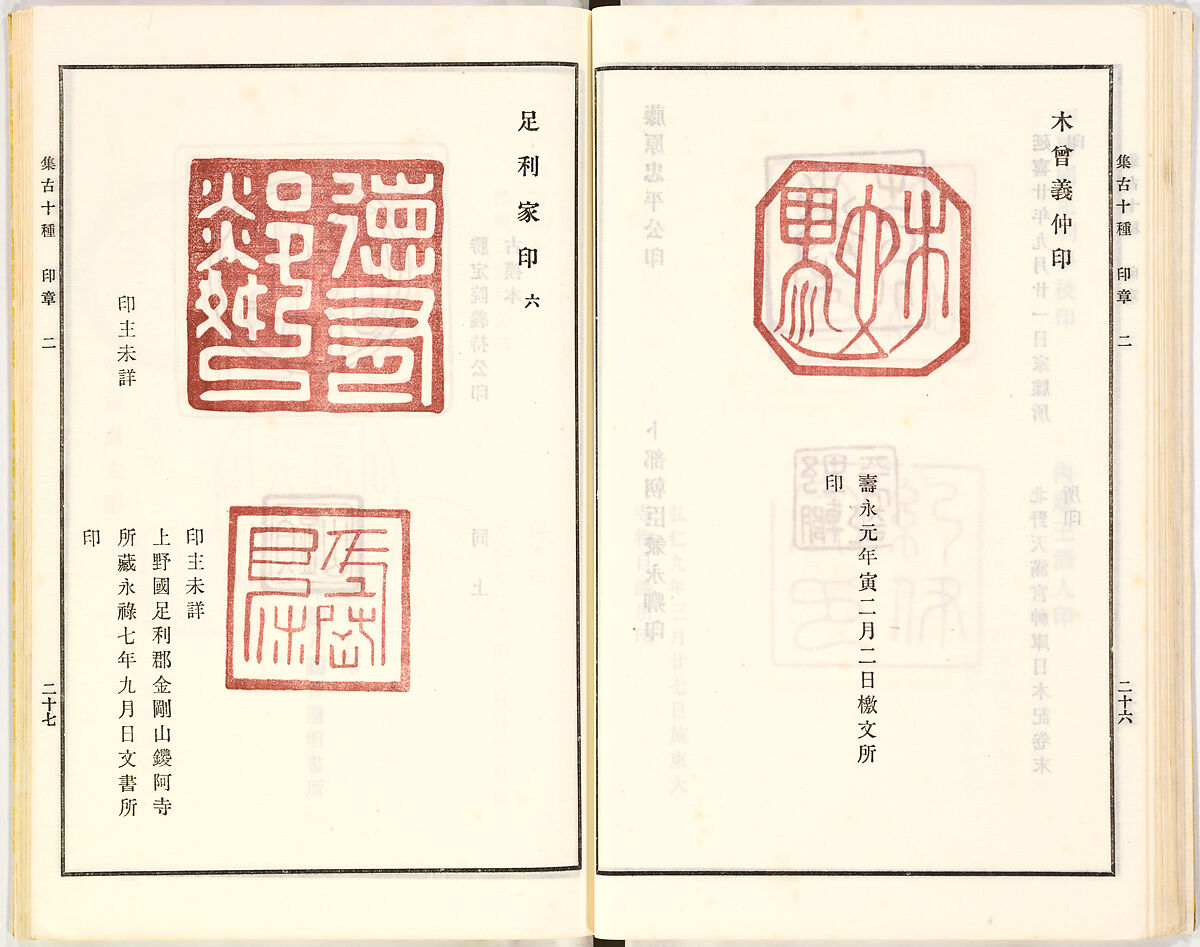 集古十種 印章 二
二十六
木曾義仲印
壽永元年寅二月二日檄文所
印
足利家印 六
德有
鄰
印主未詳
印主未詳
上野國足利郡金剛山鑁阿寺
所藏永祿七年九月日文書所
印
集古十種 印章 二
二十七